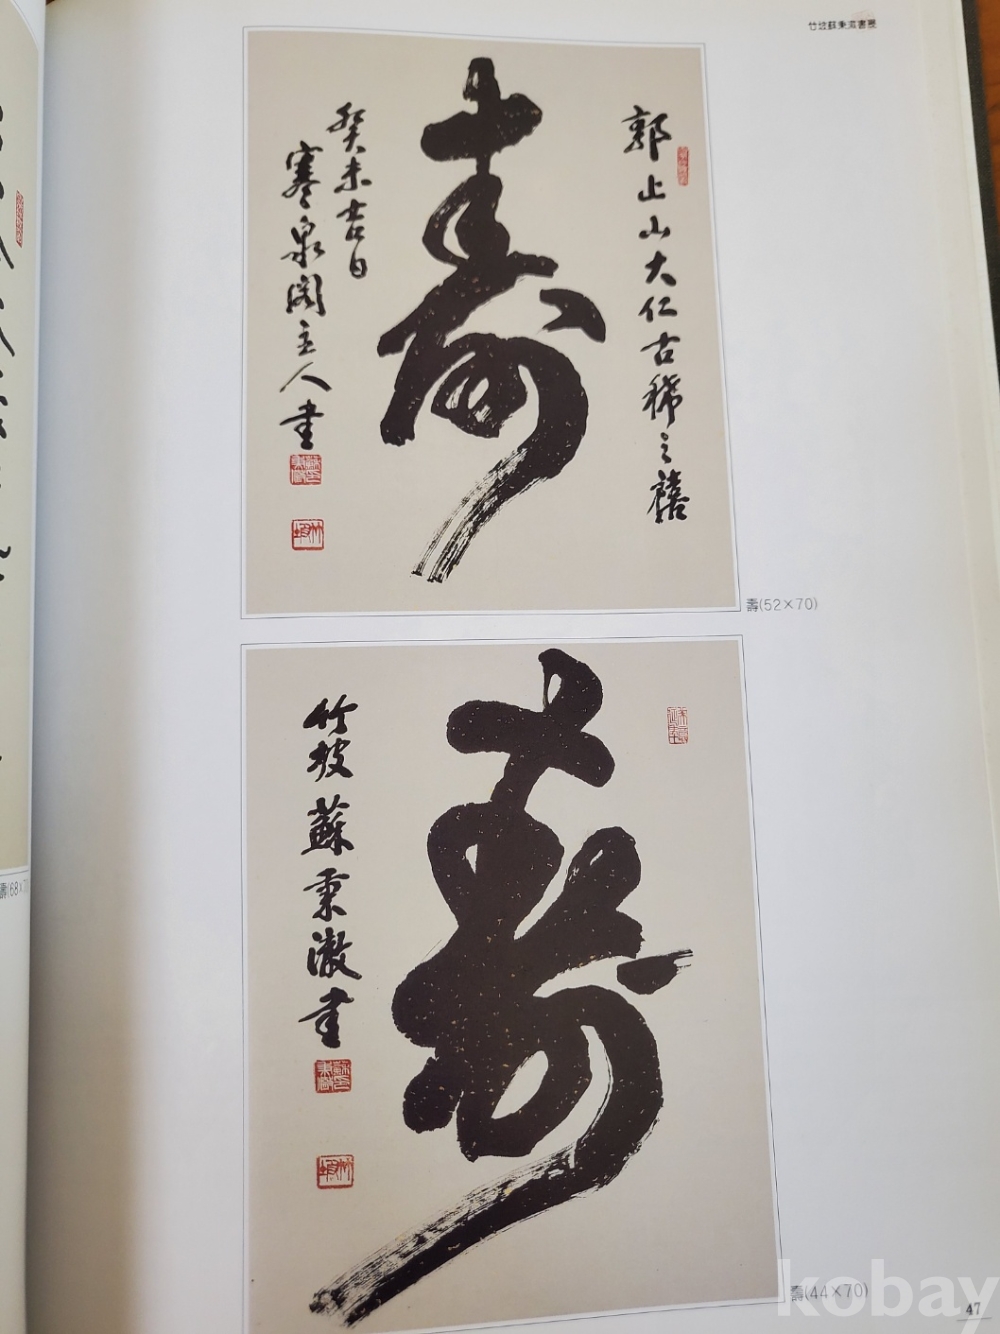 竹坡蘇秉澈書展
壽
郭止山大仁古稀之禧
癸未吉日
寒泉閣主人書
壽(52×70)
壽
竹坡蘇秉澈書
壽(44×70)
47
壽(68×
kobay